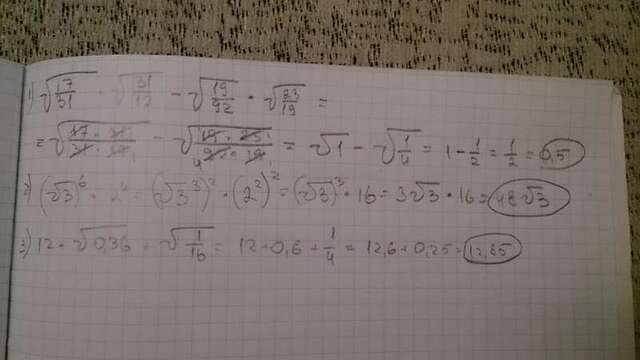 1) √(17/31) · √(31/17) - √(19/92) · √(23/19) =
= √(17 · 31 / 31 · 17) - √(19 · 23 / 92 · 19) = √1 - √(1/4) = 1 - 1/2 = 1/2 = 0,5
2) (√3)⁶ · 2⁴ = (√3³)² · (2²)² = (√3)³ · 16 = 3√3 · 16 = 48√3
3) 12 + √0,36 + √(1/16) = 12 + 0,6 + 1/4 = 12,6 + 0,25 = 12,85